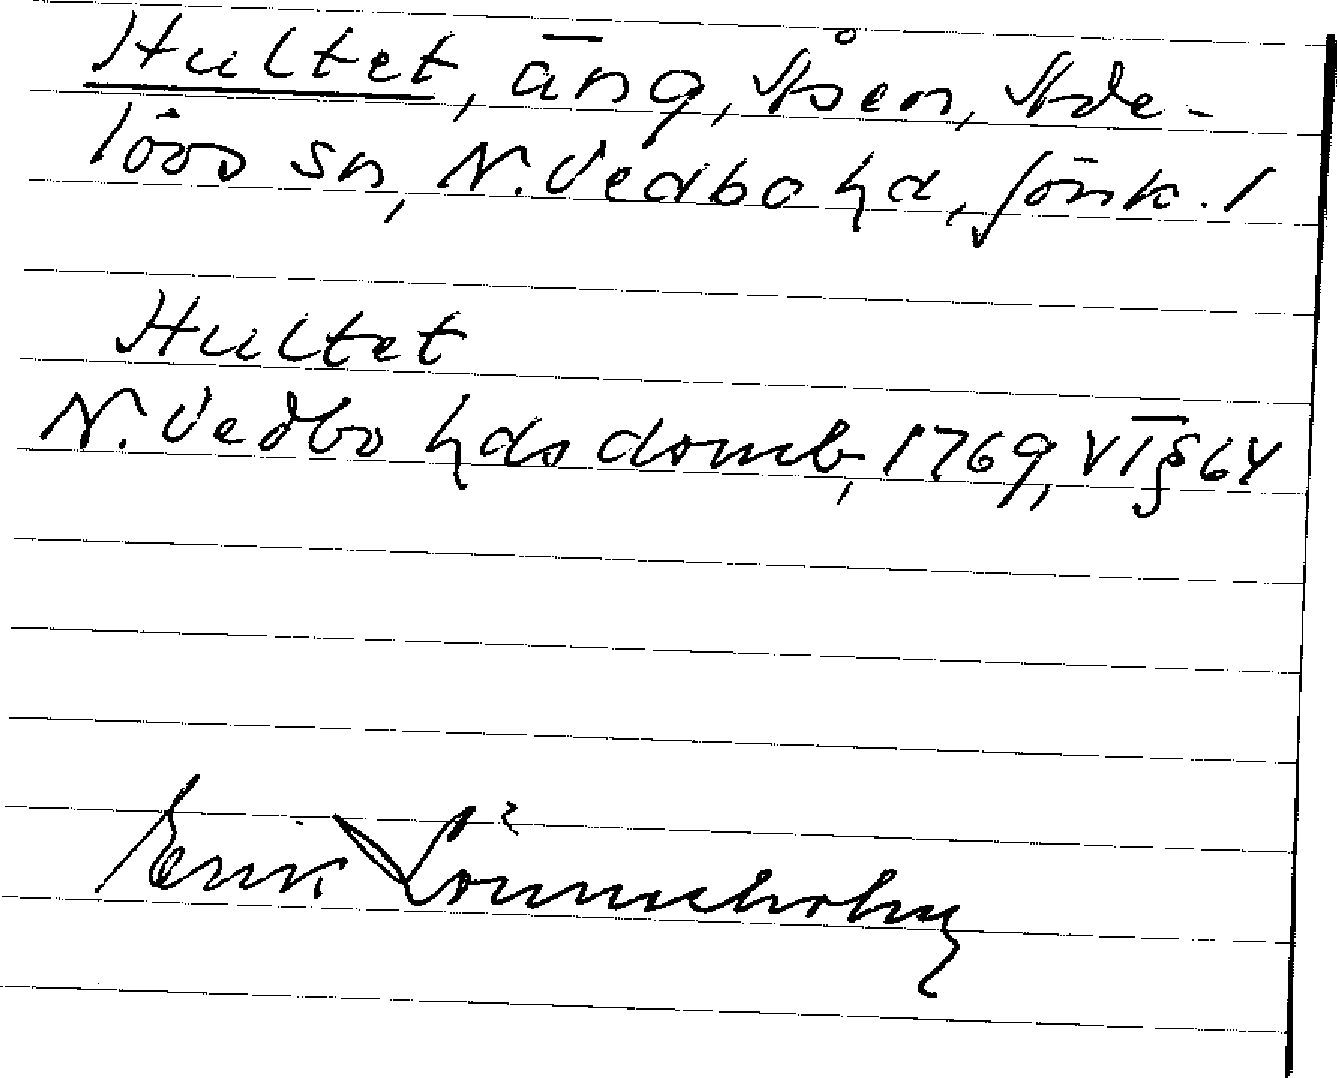 Hultet, äng, Åsen, Ade-
lövs sn, N. Vedbo hd, Jönk. l
Hultet
N. Vedbo hds domb, 1769, VI § 64
Erik Lönnerholm